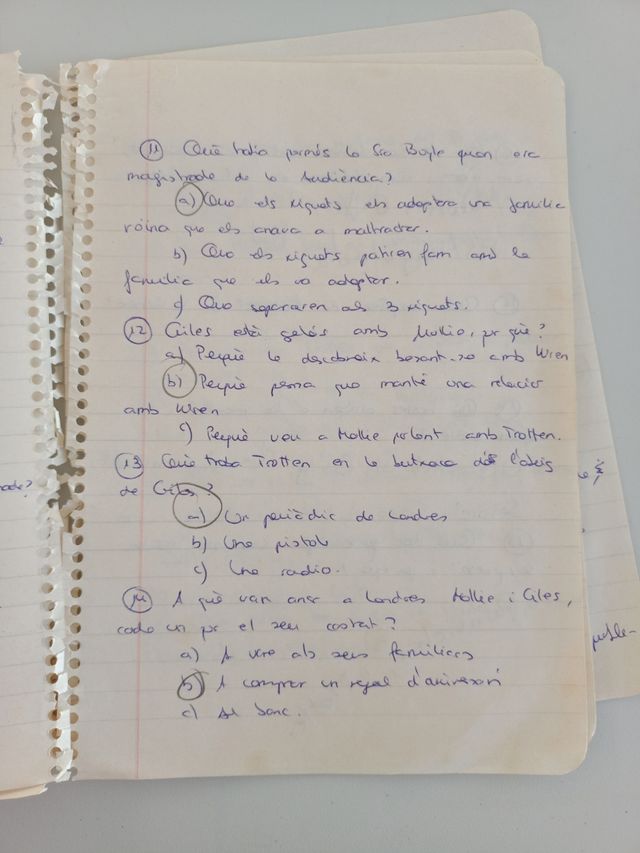 11 Què havia permès la Sra Boyle quan era
magistrada de la Audiència?
a) Que els xiquets els adoptara una família
roïna que els anava a maltractar.
b) Que els xiquets patiren fam amb la
família que els va adoptar.
c) Que separaren als 3 xiquets.
12 Giles està gelós amb Mollie, per què?
a) Perquè la descobreix besant-se amb Wren
b) Perquè pensa que manté una relació
amb Wren
c) Perquè veu a Mollie parlant amb Trotten.
13 Què troba Trotten en la butxaca de l'abric
de Giles?
a) Un periòdic de Londres
b) Una pistola
c) Una radio.
14 A què van anar a Londres Mollie i Giles,
cada un per el seu costat?
a) A vore als seus familiars
b) A comprar un regal d'aniversari
c) Al banc.